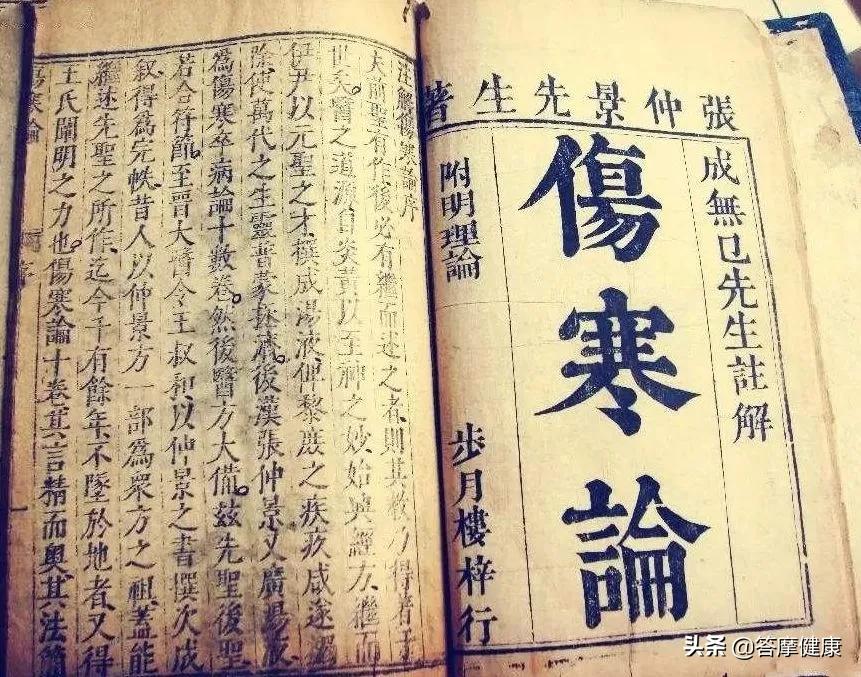 張仲景先生著
成無已先生註解
傷寒論
附明理論
步月樓梓行
注解傷寒論序
夫前聖有作後必有繼而述之者則其教乃得著于
世矣。醫之道源自炎黃以至神之妙始興經方。繼而
伊尹以元聖之才撰成湯液俾黎庶之疾疢咸遂蠲
除使萬代之生靈普蒙拯濟。後漢張仲景又廣湯液
為傷寒卒病論十數卷。然後醫方大備。茲先聖後聖
若合符節。至晉大醫令王叔和以仲景之書撰次成
敘得為完帙。昔人以仲景方一部為眾方之祖。蓋能
繼述先聖之所作。迄今千有餘年。不墜於地者。又得
王氏闡明之力也。傷寒論十卷。其言精而奧。其法簡
傷寒論
序
头条 @答摩健康